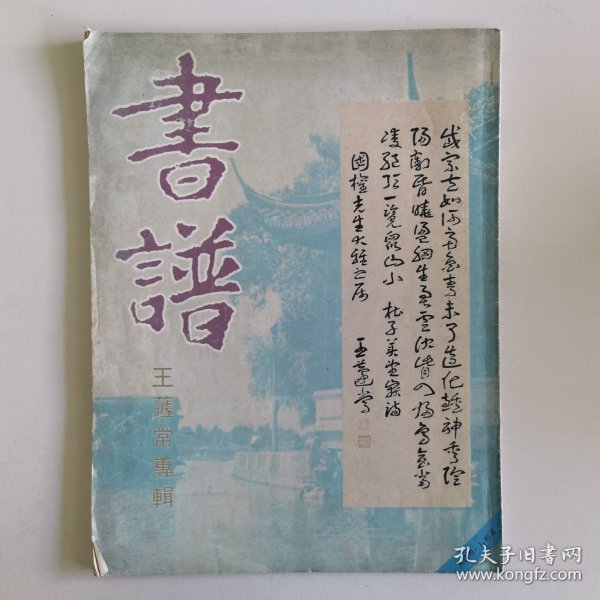 書譜
王蘧常專輯
岱宗夫如何齊魯青未了造化鍾神秀陰
陽割昏曉盪胸生曾雲決眥入歸鳥會當
凌絕頂一覽眾山小 杜子美望嶽詩
國權先生大雅之屬 王蘧常
孔夫子旧书网
www.kongfz.com